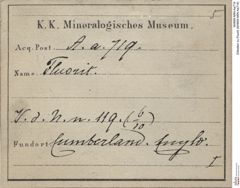 5
K. K. Mineralogisches Museum.
Acq. Post A. a. 719.
Name Fluorit.
V. d. N. n. 49. (6/10)
Fundort Cumberland. Englo.
I